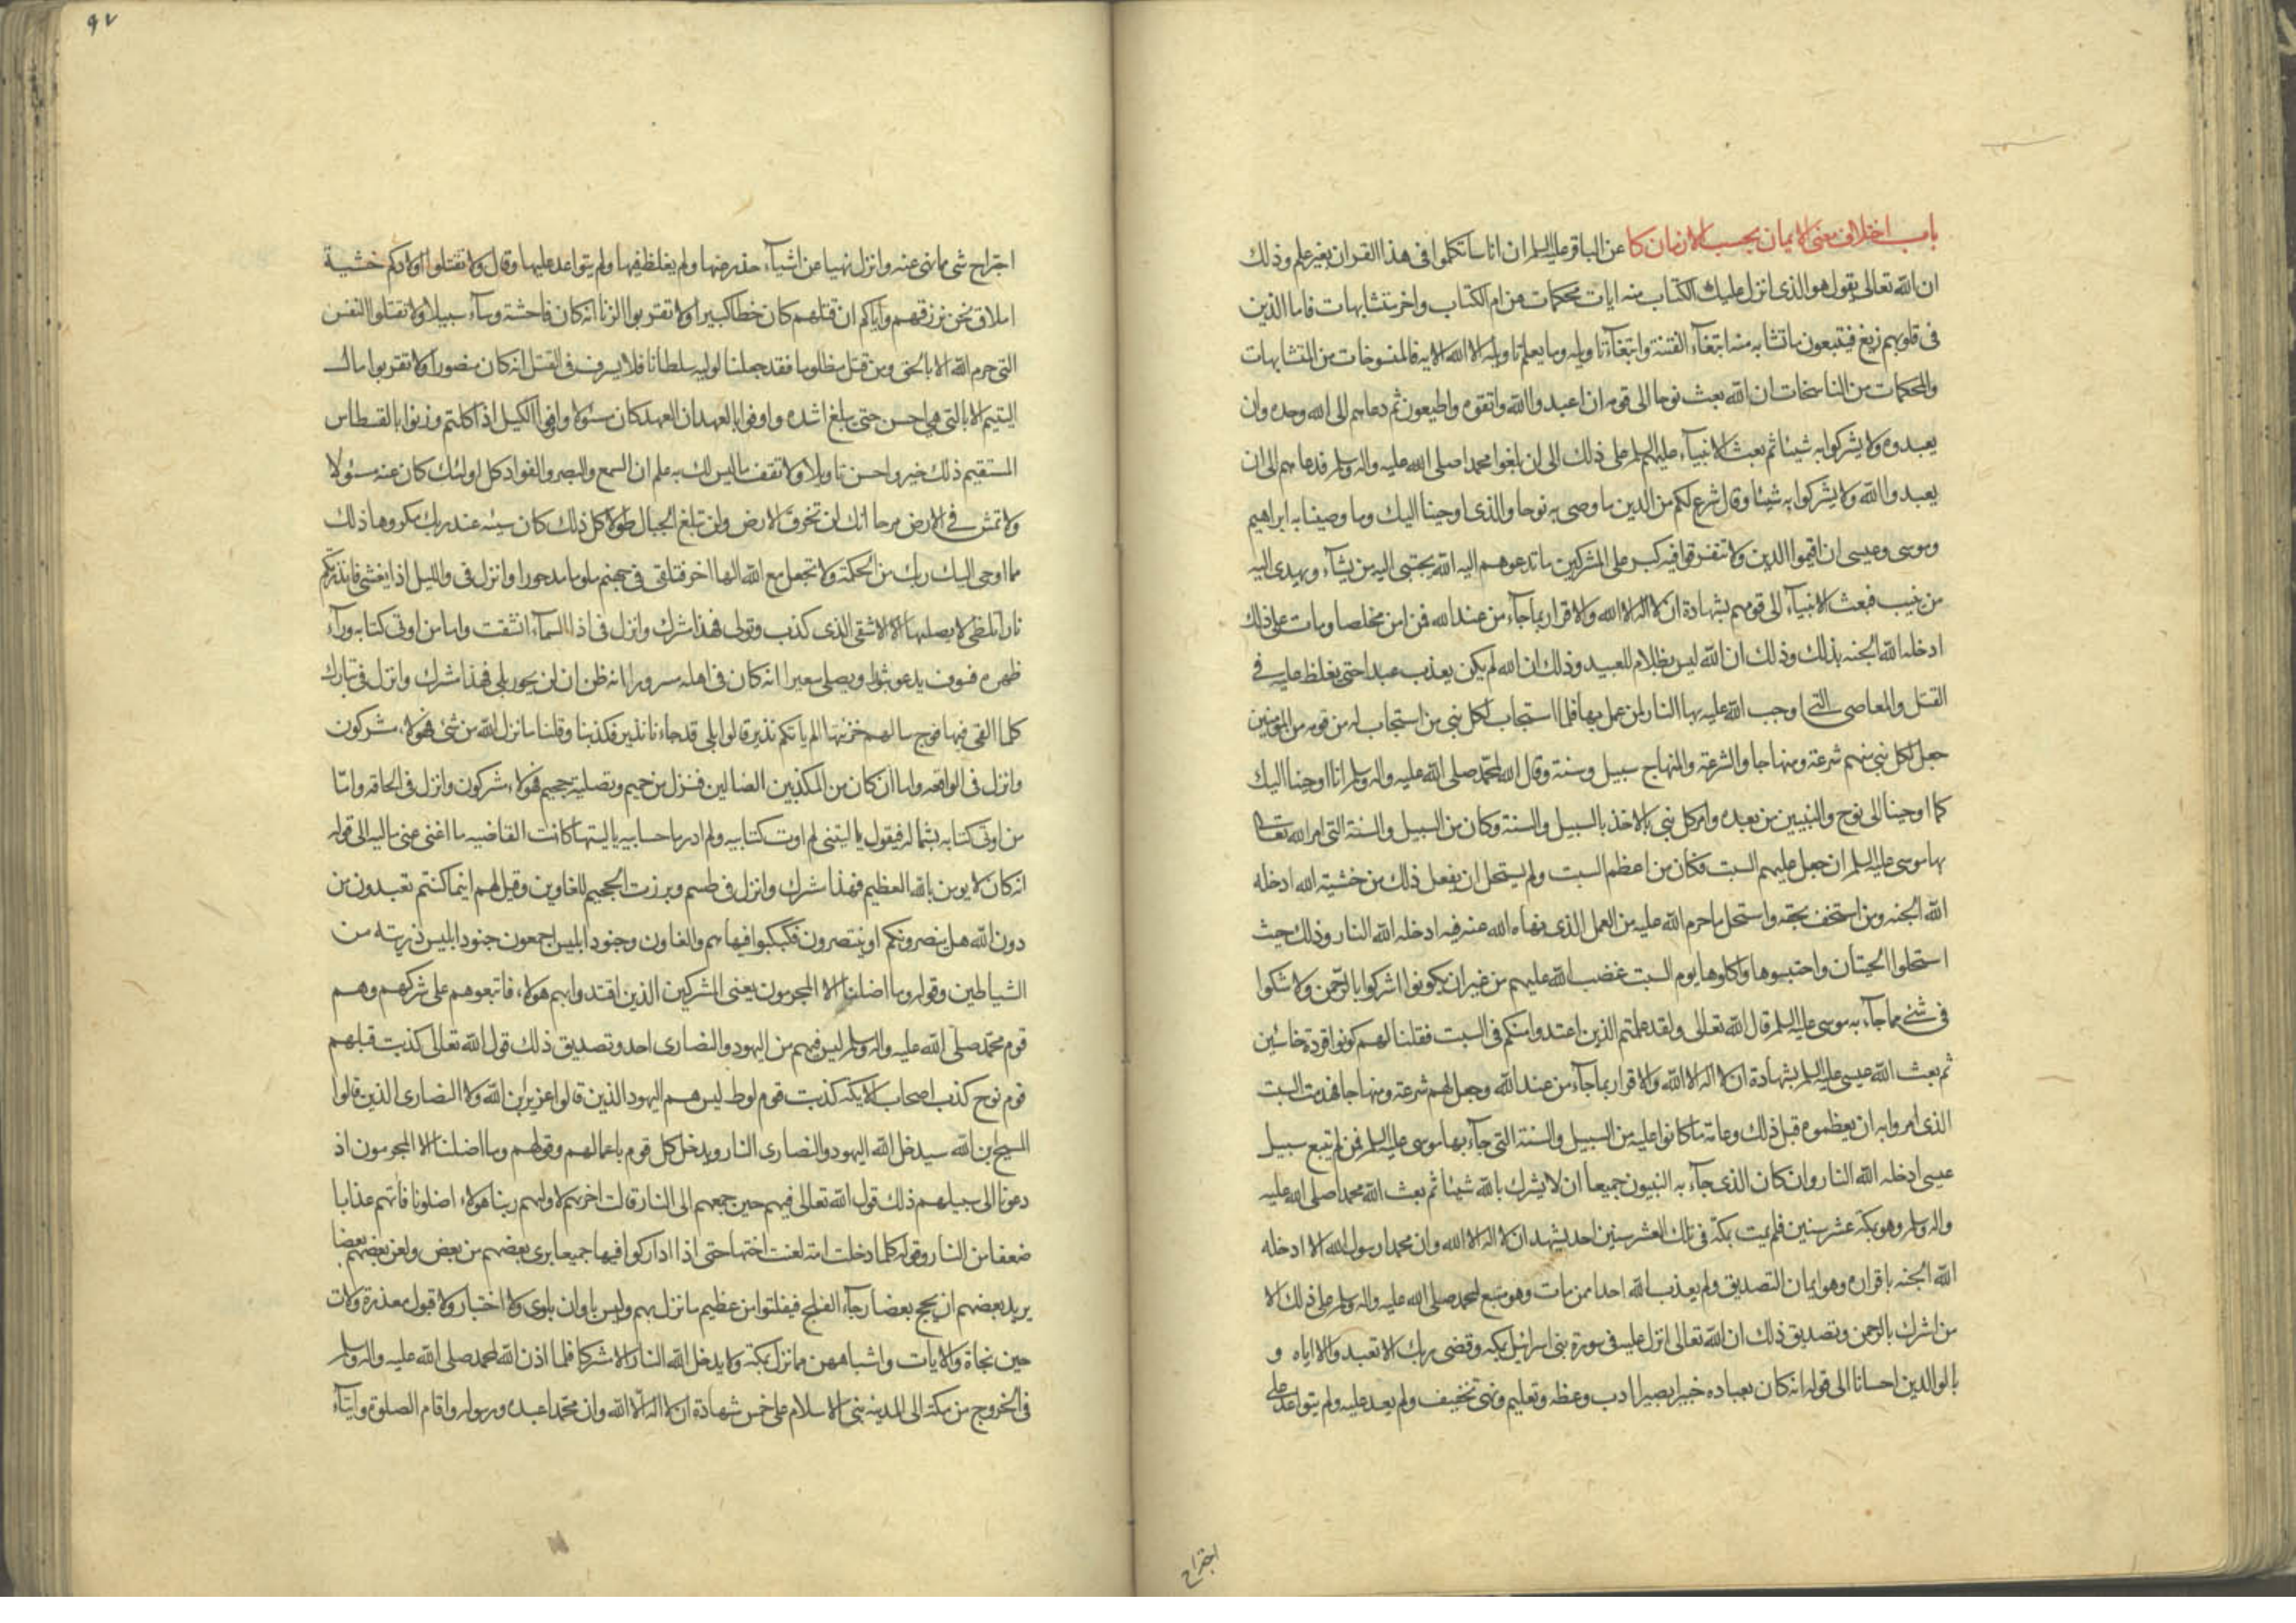 باب اختلاف معنى الايمان بحسب الازمان كا عن الباقر عليه السلم ان اناسا تكلموا فى هذا القران بغير علم وذلك
ان الله تعالى يقول هو الذى انزل عليك الكتاب منه ايات محكمات هن ام الكتاب واخر متشابهات فاما الذين
فى قلوبهم زيغ فيتبعون ما تشابه منه ابتغآء الفتنة وابتغآء تاويله وما يعلم تاويله الا الله الايه فالمنسوخات من المتشابهات
والمحكمات من الناسخات ان الله بعث نوحا الى قومه ان اعبدوا الله واتقوه واطيعون ثم دعاهم الى الله وحده وان
يعبدوه ولا يشركوا به شيئا ثم بعث الانبيآء عليهم السلم على ذلك الى ان بلغوا محمدا صلى الله عليه واله وسلم فدعاهم الى ان
يعبدوا الله ولا يشركوا به شيئا وقال شرع لكم من الدين ما وصى به نوحا والذى اوحينا اليك وما وصينا به ابراهيم
وموسى وعيسى ان اقيموا الدين ولا تتفرقوا فيه كبر على المشركين ما تدعوهم اليه الله يجتبى اليه من يشآء ويهدى اليه
من ينيب فبعث الانبيآء الى قومهم بشهادة ان لا اله الا الله والاقرار بما جآء من عند الله فمن امن مخلصا ومات على ذلك
ادخله الله الجنه بذلك وذلك ان الله ليس بظلام للعبيد وذلك ان الله لم يكن يعذب عبدا حتى يغلظ عليه فى
القتل والمعاصى التى اوجب الله عليه بها النار لمن عمل بها فلما استجاب لكل نبى من استجاب له من قومه من المؤمنين
جعل لكل نبى منهم شرعة ومنهاجا والشرعة والمنهاج سبيل وسنة وقال الله لمحمد صلى الله عليه واله وسلم انا اوحينا اليك
كما اوحينا الى نوح والنبيين من بعده وامر كل نبى بالاخذ بالسبيل والسنة وكان من السبيل والسنة التى امر الله تعالى
بها موسى عليه السلم ان جعل عليهم السبت فكان من اعظم السبت ولم يستحل ان يفعل ذلك من خشية الله ادخله
الله الجنه ومن استخف بحقه واستحل ما حرم الله عليه من العمل الذى نهاه الله عنه فيه ادخله الله النار وذلك حيث
استحلوا الحيتان واحتبسوها واكلوها يوم السبت غضب الله عليهم من غير ان يكونوا اشركوا بالرحمن ولا شكوا
فى شئ مما جآء به موسى عليه السلم قال الله تعالى ولقد علمتم الذين اعتدوا منكم فى السبت فقلنا لهم كونوا قردة خاسئين
ثم بعث الله عيسى عليه السلم بشهادة ان لا اله الا الله والاقرار بما جآء من عند الله وجعل لهم شرعة ومنهاجا فهدمت السبت
الذى امروا به ان يعظموه قبل ذلك وعامة ما كانوا عليه من السبيل والسنة التى جآء بها موسى عليه السلم فمن لم يتبع سبيل
عيسى ادخله الله النار وان كان الذى جآء به النبيون جميعا ان لا يشرك بالله شيئا ثم بعث الله محمدا صلى الله عليه
واله وسلم وهو بمكة عشر سنين فلم يمت بمكة فى تلك العشر سنين احد يشهد ان لا اله الا الله وان محمدا رسول الله الا ادخله
الله الجنه باقراره وهو ايمان التصديق ولم يعذب الله احدا ممن مات وهو متبع لمحمد صلى الله عليه واله وسلم على ذلك الا
من اشرك بالرحمن وتصديق ذلك ان الله تعالى انزل عليه فى سورة بنى اسرائيل بمكه وقضى ربك الا تعبدوا الا اياه و
بالوالدين احسانا الى قوله انه كان بعباده خبيرا بصيرا ادب وعظه وتعليم ونهى تخفيف ولم يعد عليه ولم يتواعد على
اجتراح
٩٧
اجتراح شى مما نهى عنه وانزل نهيا عن اشيآء حذر منها ولم يغلظ فيها ولم يتواعد عليها وقال ولا تقتلوا اولادكم خشية
املاق نحن نرزقهم واياكم ان قتلهم كان خطا كبيرا ولا تقربوا الزنا انه كان فاحشة وسآء سبيلا ولا تقتلوا النفس
التى حرم الله الا بالحق ومن قتل مظلوما فقد جعلنا لوليه سلطانا فلا يسرف فى القتل انه كان منصورا ولا تقربوا مال
اليتيم الا بالتى هى احسن حتى يبلغ اشده واوفوا بالعهد ان العهد كان مسئولا واوفوا الكيل اذا كلتم وزنوا بالقسطاس
المستقيم ذلك خير واحسن تاويلا ولا تقف ما ليس لك به علم ان السمع والبصر والفواد كل اولئك كان عنه مسئولا
ولا تمش فى الارض مرحا انك لن تخرق الارض ولن تبلغ الجبال طولا كل ذلك كان سيئه عند ربك مكروها ذلك
مما اوحى اليك ربك من الحكمة ولا تجعل مع الله الها اخر فتلقى فى جهنم ملوما مدحورا وانزل فى والليل اذا يغشى فانذرتكم
نارا تلظى لا يصليها الا الاشقى الذى كذب وتولى فهذا مشرك وانزل فى اذا السمآء انشقت واما من اوتى كتابه ورآء
ظهره فسوف يدعو ثبورا ويصلى سعيرا انه كان فى اهله مسرورا انه ظن ان لن يحور بلى فهذا مشرك وانزل فى تبارك
كلما القى فيها فوج سالهم خزنتها الم ياتكم نذير قالوا بلى قد جاءنا نذير فكذبنا وقلنا ما نزل الله من شئ فهؤلاء مشركون
وانزل فى الواقعه واما ان كان من المكذبين الضالين فنزل من حميم وتصلية جحيم فهؤلاء مشركون وانزل فى الحاقه واما
من اوتى كتابه بشماله فيقول يا ليتنى لم اوت كتابيه ولم ادر ما حسابيه يا ليتها كانت القاضيه ما اغنى عنى ماليه الى قوله
انه كان لا يومن بالله العظيم فهذا مشرك وانزل فى طسم وبرزت الجحيم للغاوين وقيل لهم اينما كنتم تعبدون من
دون الله هل ينصرونكم او ينتصرون فكبكبوا فيها هم والغاون وجنود ابليس اجمعون جنود ابليس ذريته من
الشياطين وقوله وما اضلنا الا المجرمون يعنى المشركين الذين اقتدوا بهم هولاء فاتبعوهم على شركهم وهم
قوم محمد صلى الله عليه واله وسلم ليس فيهم من اليهود والنصارى احد وتصديق ذلك قول الله تعالى كذبت قبلهم
قوم نوح كذب اصحاب الايكه كذبت قوم لوط ليس هم اليهود الذين قالوا عزير ابن الله ولا النصارى الذين قالوا
المسيح ابن الله سيدخل الله اليهود والنصارى النار ويدخل كل قوم باعمالهم وقولهم وما اضلنا الا المجرمون اذ
دعونا الى سبيلهم ذلك قول الله تعالى فيهم حين جمعهم الى النار قالت اخريهم لاوليهم ربنا هولاء اضلونا فاتهم عذابا
ضعفا من النار وقوله كلما دخلت امة لعنت اختها حتى اذا اداركوا فيها جميعا برى بعضهم من بعض ولعن بعضهم بعضا
يريد بعضهم ان يحج بعضا رجآء الفلج فيفلتوا من عظيم ما نزل بهم وليس باوان بلوى ولا اختبار ولا قبول معذرة ولات
حين نجاة والايات واشباههن مما نزل بمكة ولا يدخل الله النار الا مشركا فلما اذن الله لمحمد صلى الله عليه واله وسلم
فى الخروج من مكة الى المدينه بنى الاسلام على خمس شهادة ان لا اله الا الله وان محمدا عبده ورسوله واقام الصلوة وايتآء